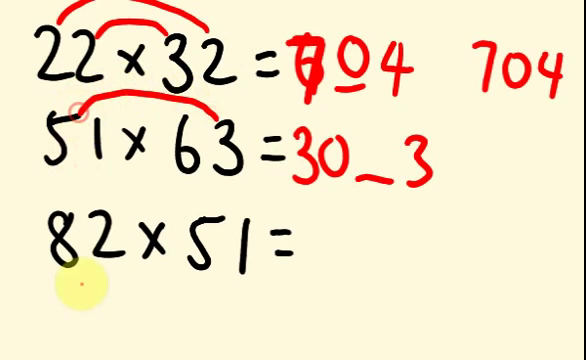 22 × 32 = 704 704
51 × 63 = 30_3
82 × 51 =